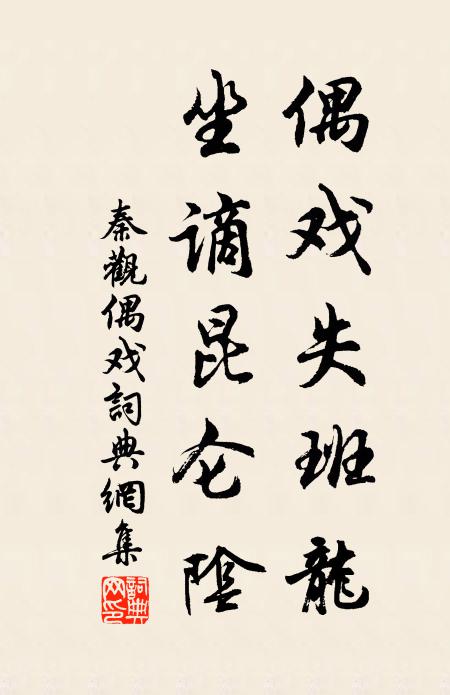 偶戏失班龍
坐谪昆仑陰
秦觀偶戏詞典網集
詞典网印